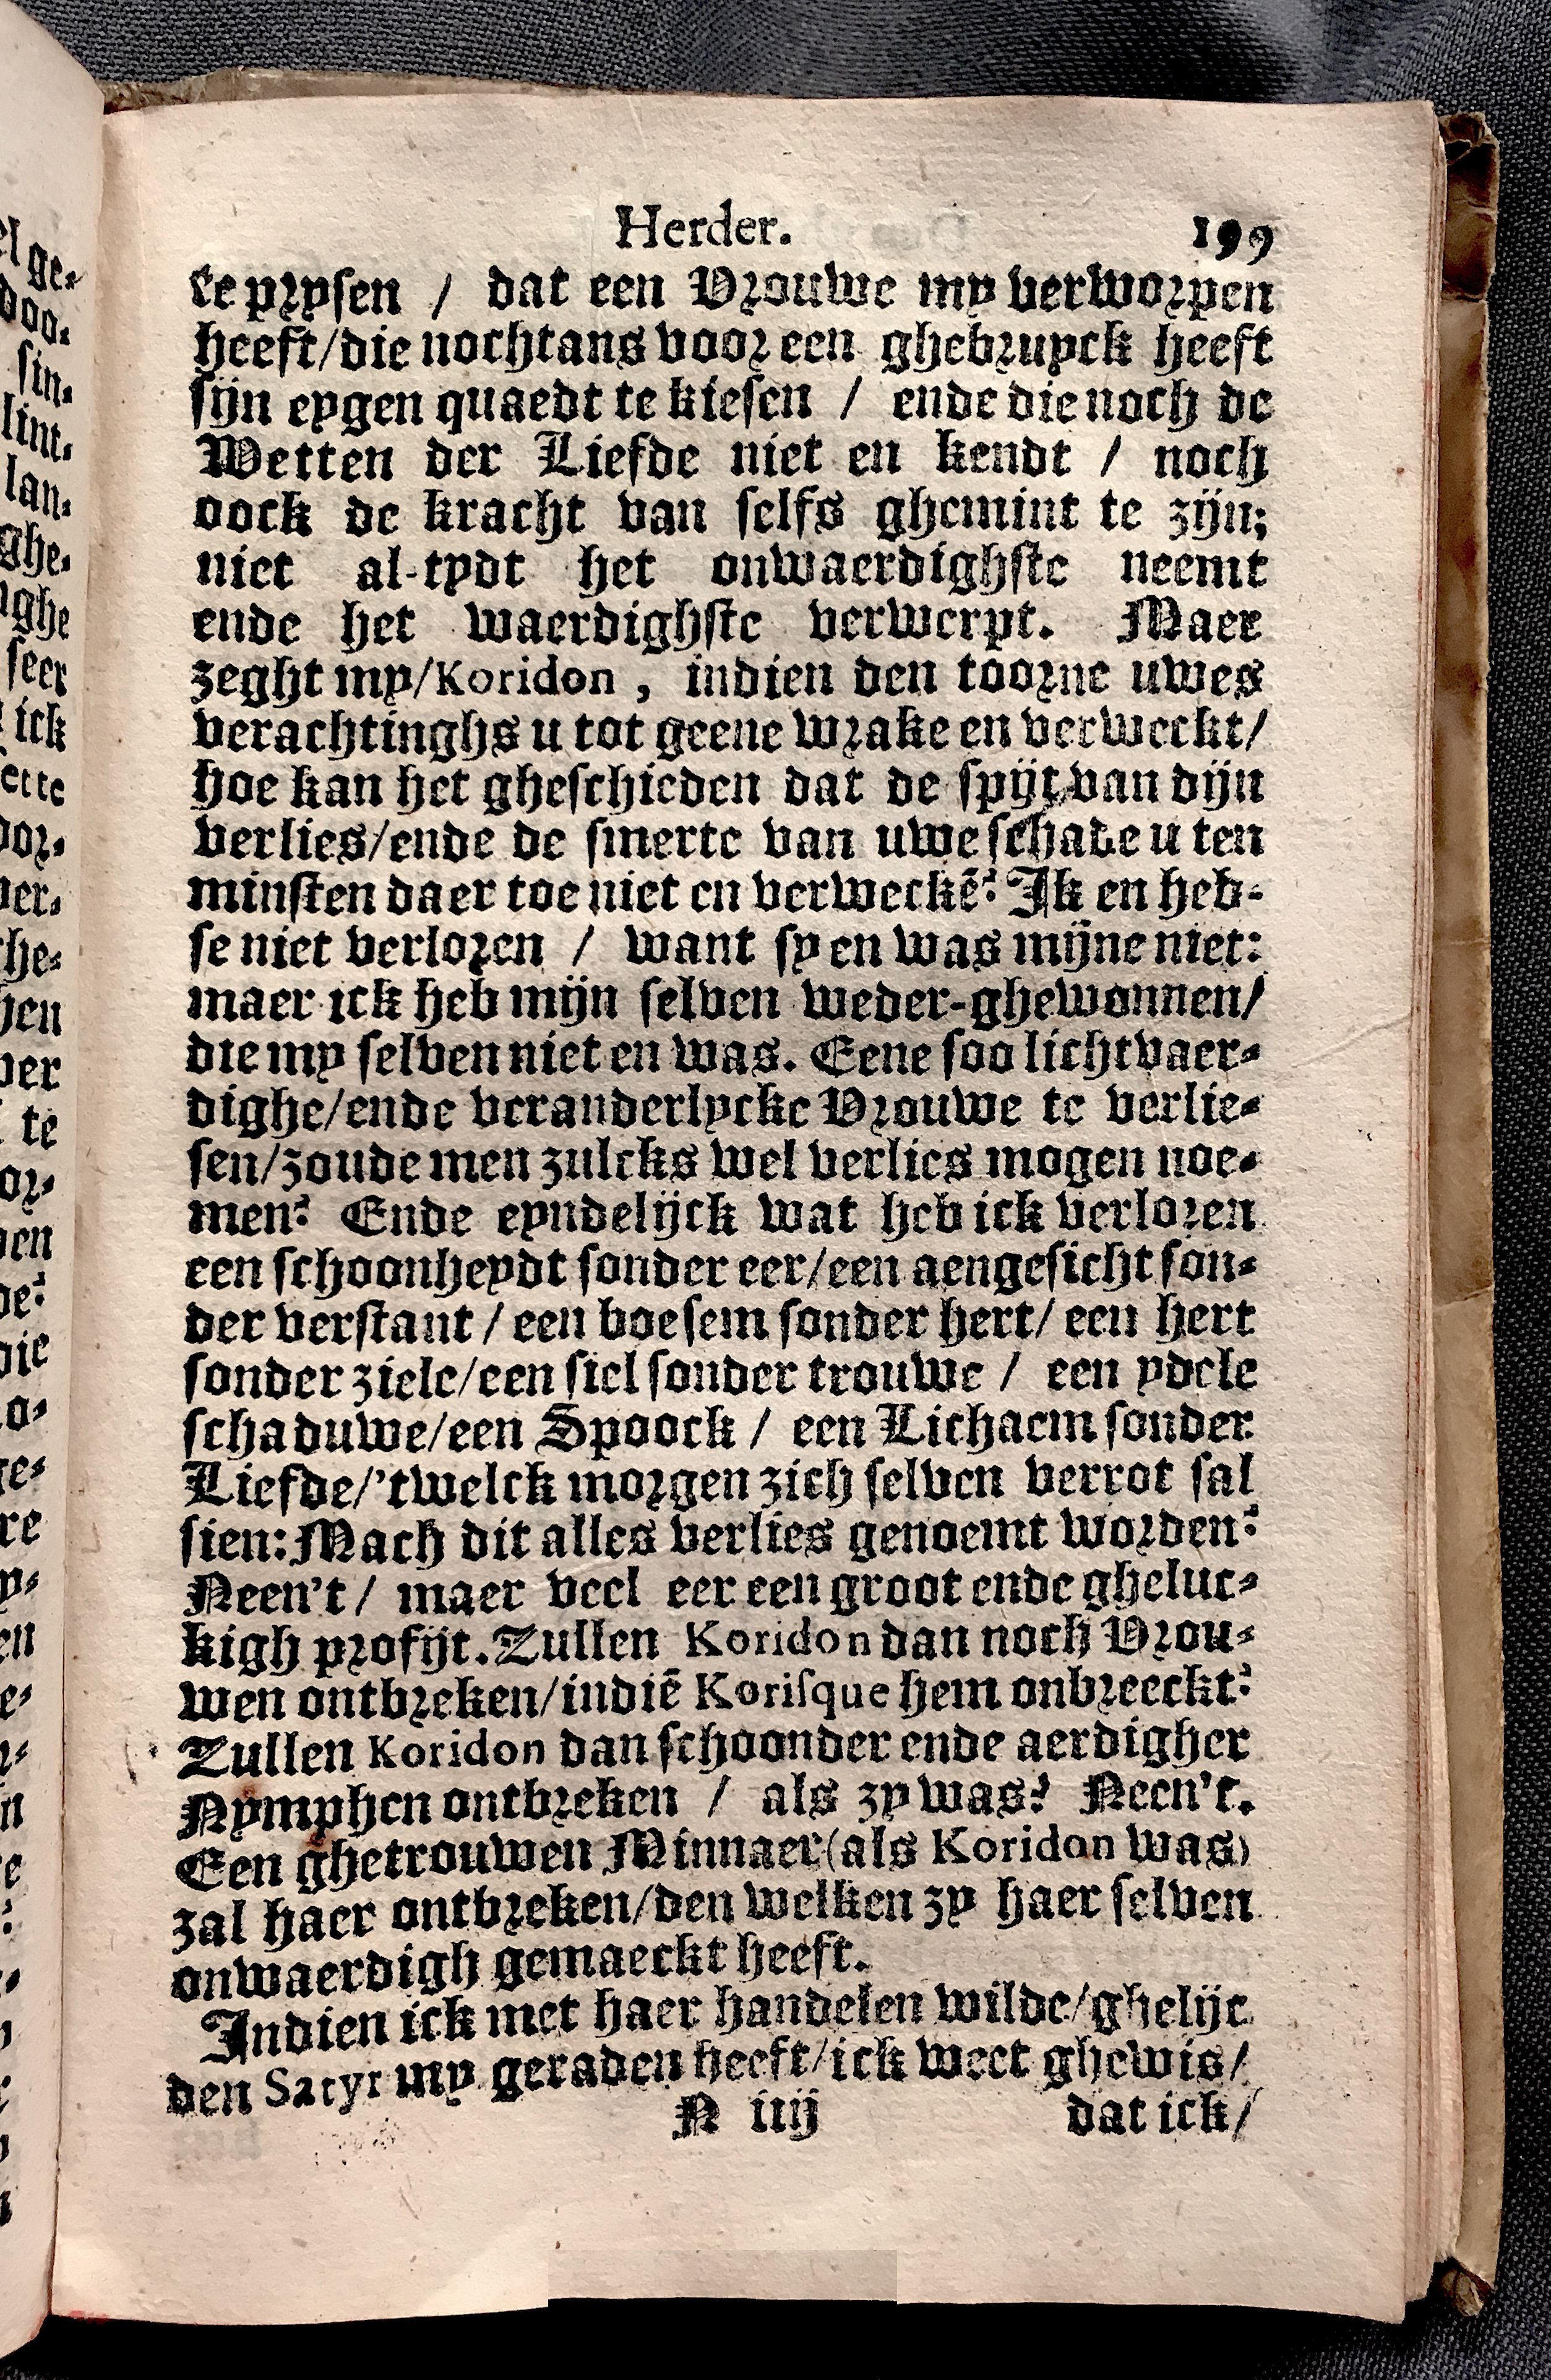 Herder. 199
te prysen / dat een Vrouwe my verworpen
heeft/die nochtans voor een ghebruyck heeft
sijn eygen quaedt te kiesen / ende die noch de
Wetten der Liefde niet en kendt / noch
oock de kracht van selfs ghemint te zijn;
niet al-tydt het onwaerdighste neemt
ende het waerdighste verwerpt. Maer
zeght my/Koridon, indien den toorne uwes
verachtinghs u tot geene wrake en verweckt/
hoe kan het gheschieden dat de spijt van dijn
verlies/ende de smerte van uwe schade u ten
minsten daer toe niet en verweckē? Ik en heb-
se niet verloren / want sy en was mijne niet:
maer ick heb mijn selven weder-ghewonnen/
die my selven niet en was. Eene soo lichtvaer-
dighe/ende veranderlycke Vrouwe te verlie-
sen/zoude men zulcks wel verlies mogen noe-
men? Ende eyndelijck wat heb ick verloren
een schoonheydt sonder eer/een aengesicht son-
der verstant / een boesem sonder hert/ een hert
sonder ziele/een siel sonder trouwe / een ydele
schaduwe/een Spoock / een Lichaem sonder
Liefde/'twelck morgen zich selven verrot sal
sien: Mach dit alles verlies genoemt worden?
Neen't / maer veel eer een groot ende gheluc-
kigh profijt. Zullen Koridon dan noch Vrou-
wen ontbreken/indiē Korisque hem onbreeckt?
Zullen Koridon dan schoonder ende aerdigher
Nymphen ontbreken / als zy was? Neen't.
Een ghetrouwen Minnaer (als Koridon was)
zal haer ontbreken/den welken zy haer selven
onwaerdigh gemaeckt heeft.
Indien ick met haer handelen wilde/ghelijc
den Satyr my geraden heeft/ick weet ghewis/
N iiij dat ick/